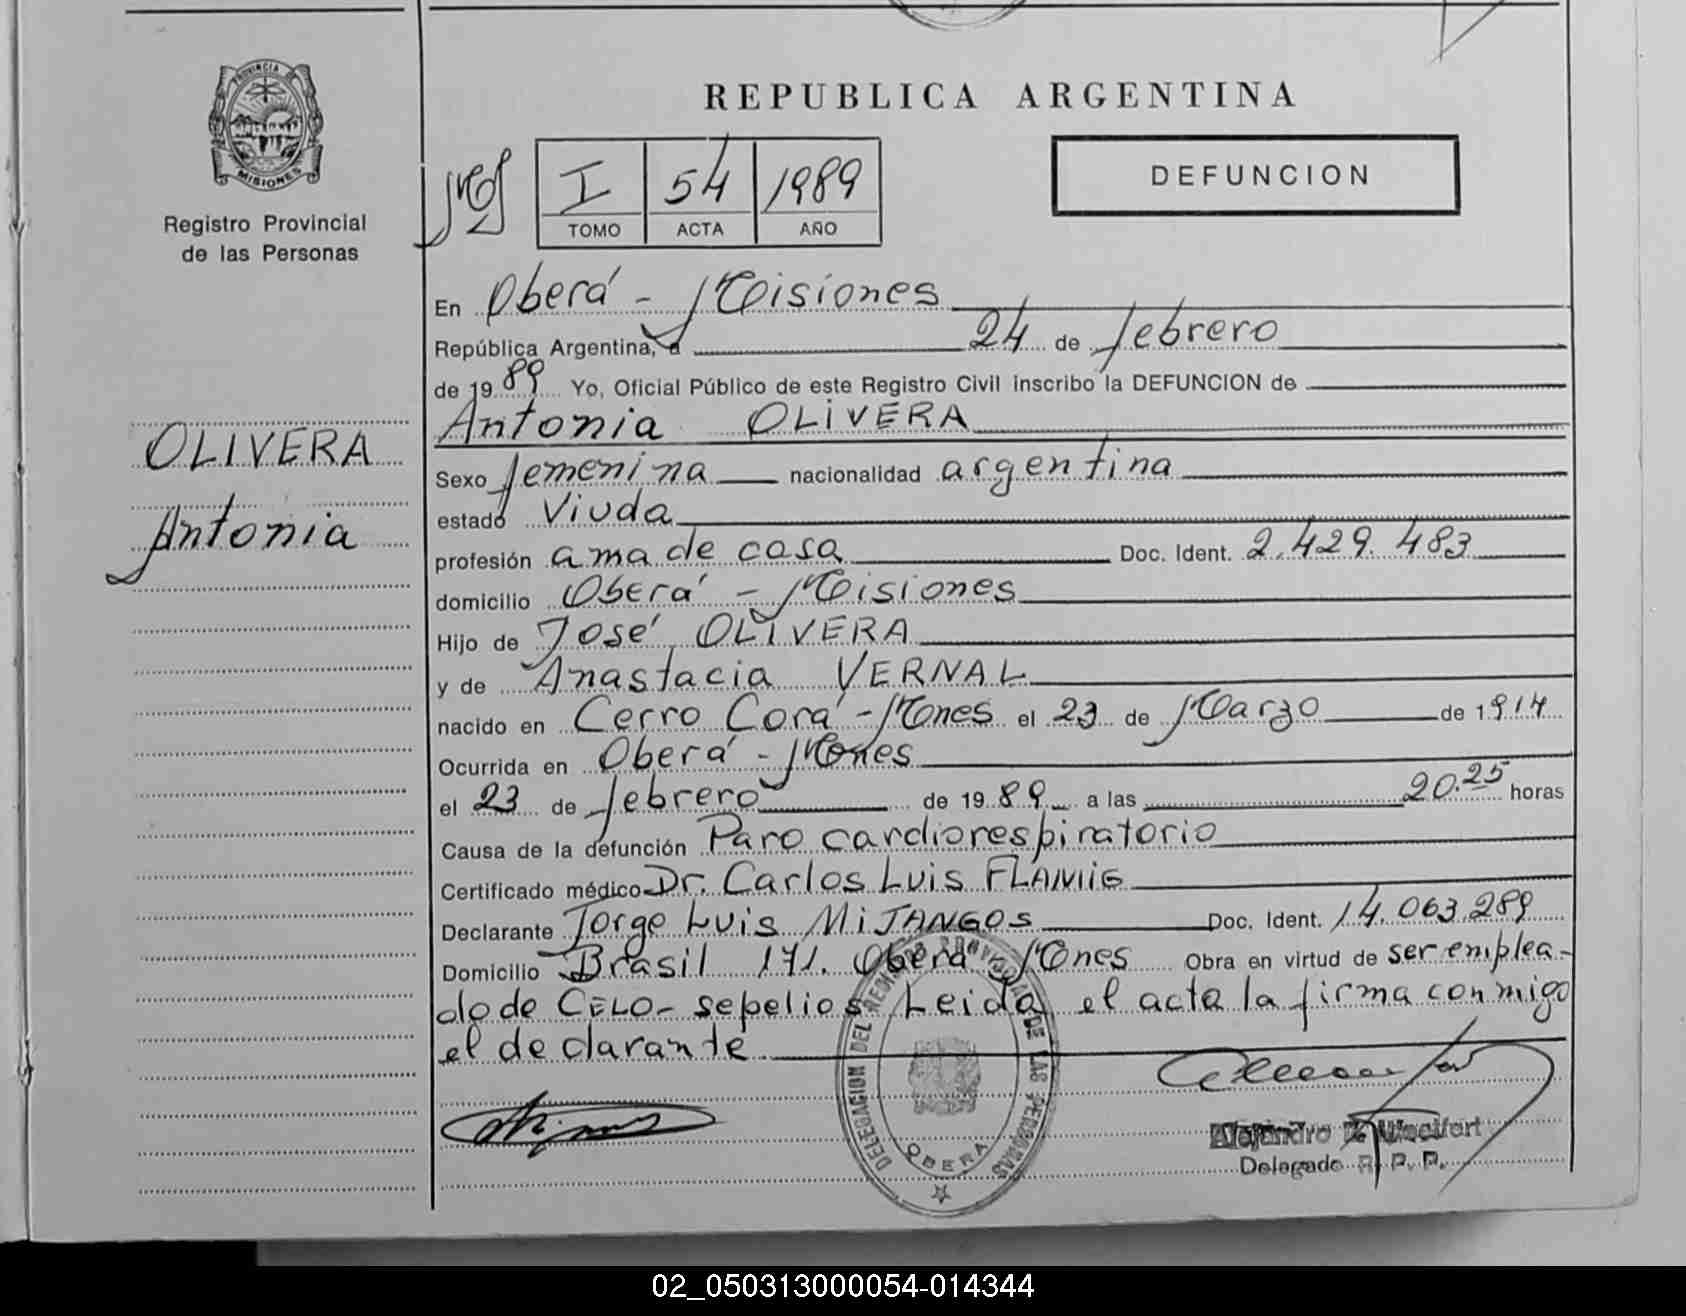 REPUBLICA ARGENTINA
PROVINCIA DE
MISIONES
Registro Provincial
de las Personas
I 54 1989
TOMO ACTA AÑO
DEFUNCION
En Oberá - Misiones
República Argentina, a 24 de febrero
de 1989 Yo, Oficial Público de este Registro Civil inscribo la DEFUNCION de
Antonia OLIVERA
OLIVERA
Antonia
Sexo femenina nacionalidad argentina
estado Viuda
profesión ama de casa Doc. Ident. 2.429.483
domicilio Oberá - Misiones
Hijo de José OLIVERA
y de Anastacia VERNAL
nacido en Cerro Corá - Mnes el 23 de Marzo de 1914
Ocurrida en Oberá - Mnes
el 23 de febrero de 1989 a las 20.25 horas
Causa de la defunción Paro cardiorespiratorio
Certificado médico Dr. Carlos Luis FLAMIG
Declarante Jorge Luis MiJANGOS Doc. Ident. 14.063.289
Domicilio Brasil 171. Oberá Mnes Obra en virtud de ser emplea-
do de CELO- sepelios. Leida el acta la firma conmigo
el declarante
DELEGACION DEL REGISTRO PROVINCIAL DE LAS PERSONAS
OBERA
Alejandro
Delegado R. P. P.
02_050313000054-014344